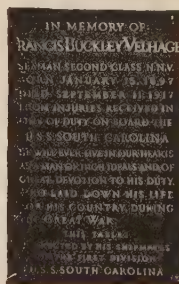 IN MEMORY OF
FRANCIS BUCKLEY VELHAGE
SEAMAN SECOND CLASS N.N.V.
BORN JANUARY 1897
DIED SEPTEMBER 1, 1917
FROM INJURIES RECEIVED IN
LINE OF DUTY ON BOARD THE
U.S.S. SOUTH CAROLINA
HE WILL EVER LIVE IN OUR HEARTS
AS A MAN OF HIGH IDEALS AND OF
GREAT DEVOTION TO HIS DUTY.
HE LAID DOWN HIS LIFE
FOR HIS COUNTRY DURING
THE GREAT WAR.
THIS TABLET
ERECTED BY HIS SHIPMATES
OF THE FIRST DIVISION
U.S.S. SOUTH CAROLINA